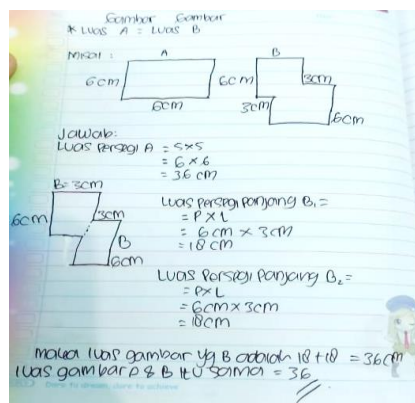 Gambar Gambar
* Luas A = Luas B
Misal :
A
6cm
6cm
B
6cm
3cm
3cm
6cm
Jawab:
Luas Persegi A = S×S
= 6 × 6
= 36 cm
B = 3cm
6cm
3cm
B
6cm
Luas Persegi Panjang B₁ =
= P × L
= 6cm × 3cm
= 18 cm
Luas Persegi Panjang B₂ =
= P×L
= 6cm × 3cm
= 18cm
maka luas gambar yg B adalah 18 + 18 = 36cm
luas gambar A & B itu sama = 36
Dare to dream, dare to achieve